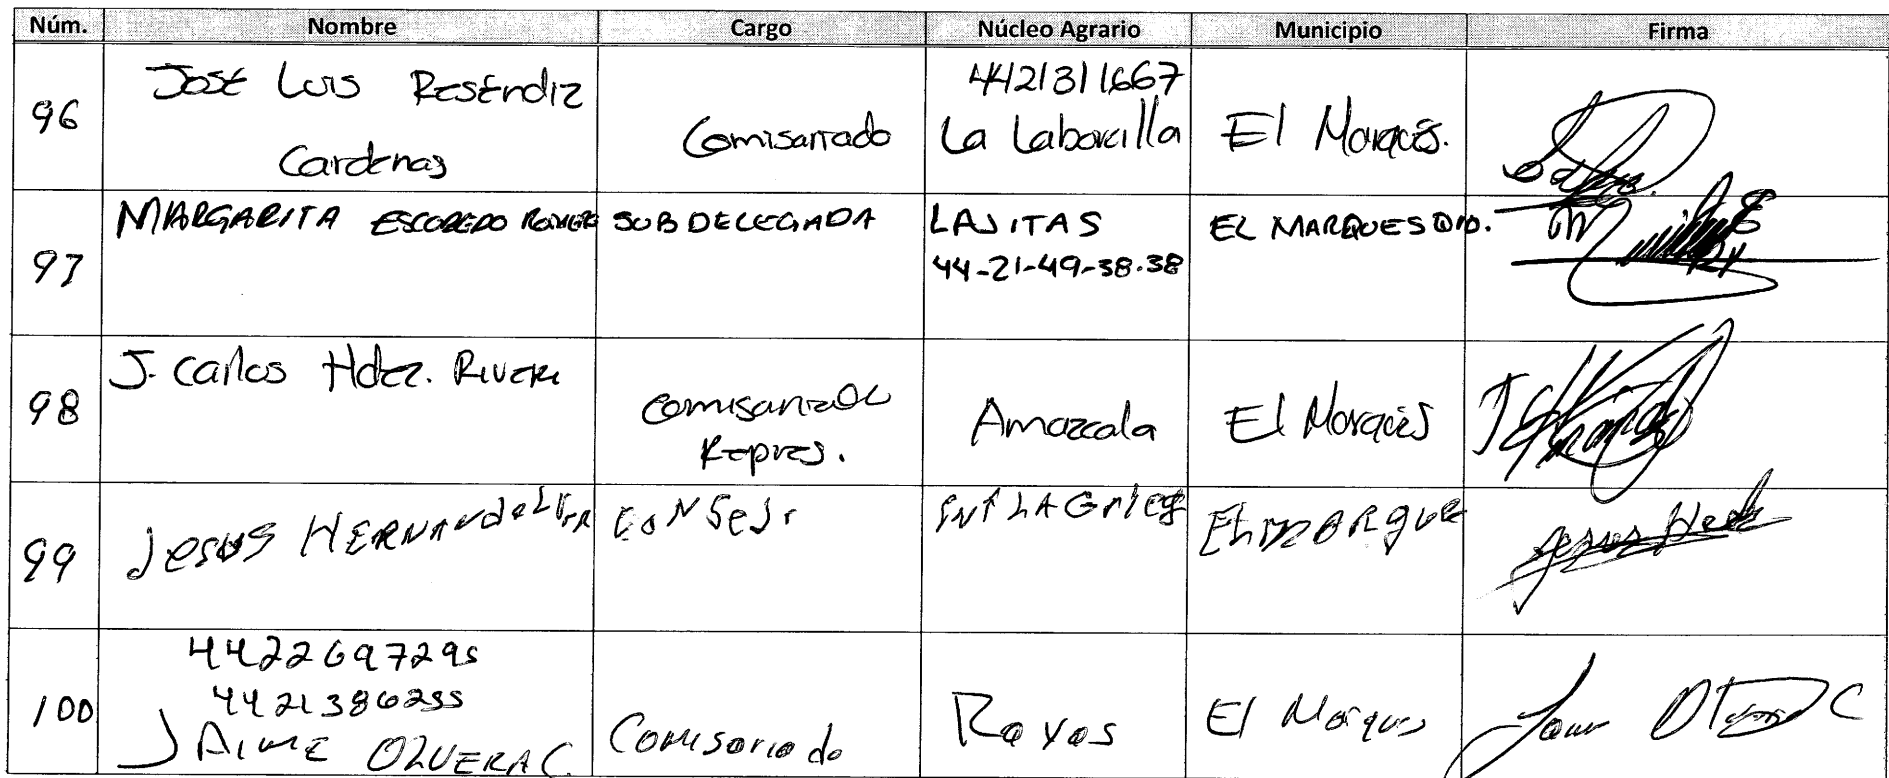 Núm. Nombre Cargo Núcleo Agrario Municipio Firma
96 José Luis Reséndiz Cardenas Comisariado 4421311667 La Laborcilla El Marqués.
97 MARGARITA ESCOBEDO ROMERO SUBDELEGADA LAJITAS 44-21-49-38-38 EL MARQUES QRO.
98 J. Carlos Hdez. Rivera Comisariado Repres. Amazcala El Marqués
99 JESUS HERNANdez CONSeJo LA GrIeg EL MARQUE Jesus
100 4422697295 4421386255 JAIME OLVERA C. Comisariado Rayas El Marques